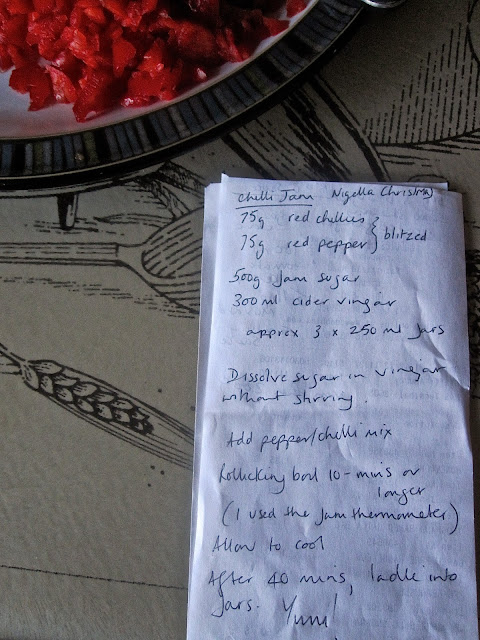 Chilli Jam Nigella Christmas
75g red chillies
75g red pepper } blitzed
500g Jam sugar
300 ml cider vinegar
approx 3 x 250 ml Jars
Dissolve sugar in vinegar
without stirring.
Add pepper/chilli mix
Rollicking boil 10-mins or
longer
(I used the jam thermometer)
Allow to cool
After 40 mins, ladle into
Jars. Yum!